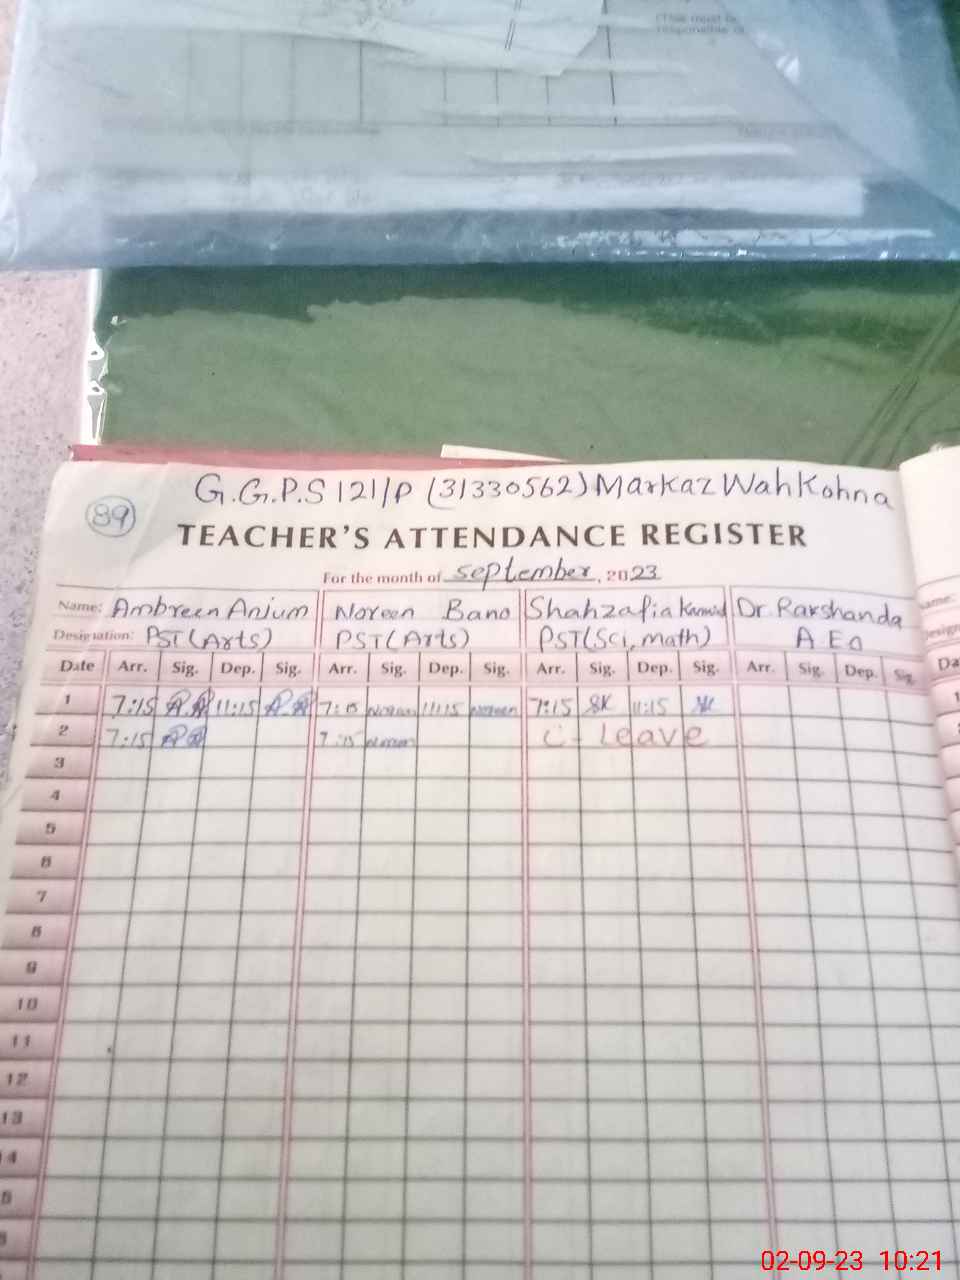 (This must be
responsible
G.G.P.S 121/P (31330562) Markaz Wah Kohna
89
TEACHER'S ATTENDANCE REGISTER
For the month of September, 2023
Name: Ambreen Anjum Noreen Bano Shahzafia Dr. Rakshanda
Designation: PST (Arts) PST (Arts) PST (Sci, math) A E O
Date Arr. Sig. Dep. Sig. Arr. Sig. Dep. Sig. Arr. Sig. Dep. Sig. Arr. Sig. Dep. Sig.
1 7:15 11:15 7:15 Noreen 11:15 Noreen 7:15 SK 11:15 SK
2 7:15 7:15 Noreen C- Leave
3
4
5
6
7
8
9
10
11
12
13
14
02-09-23 10:21